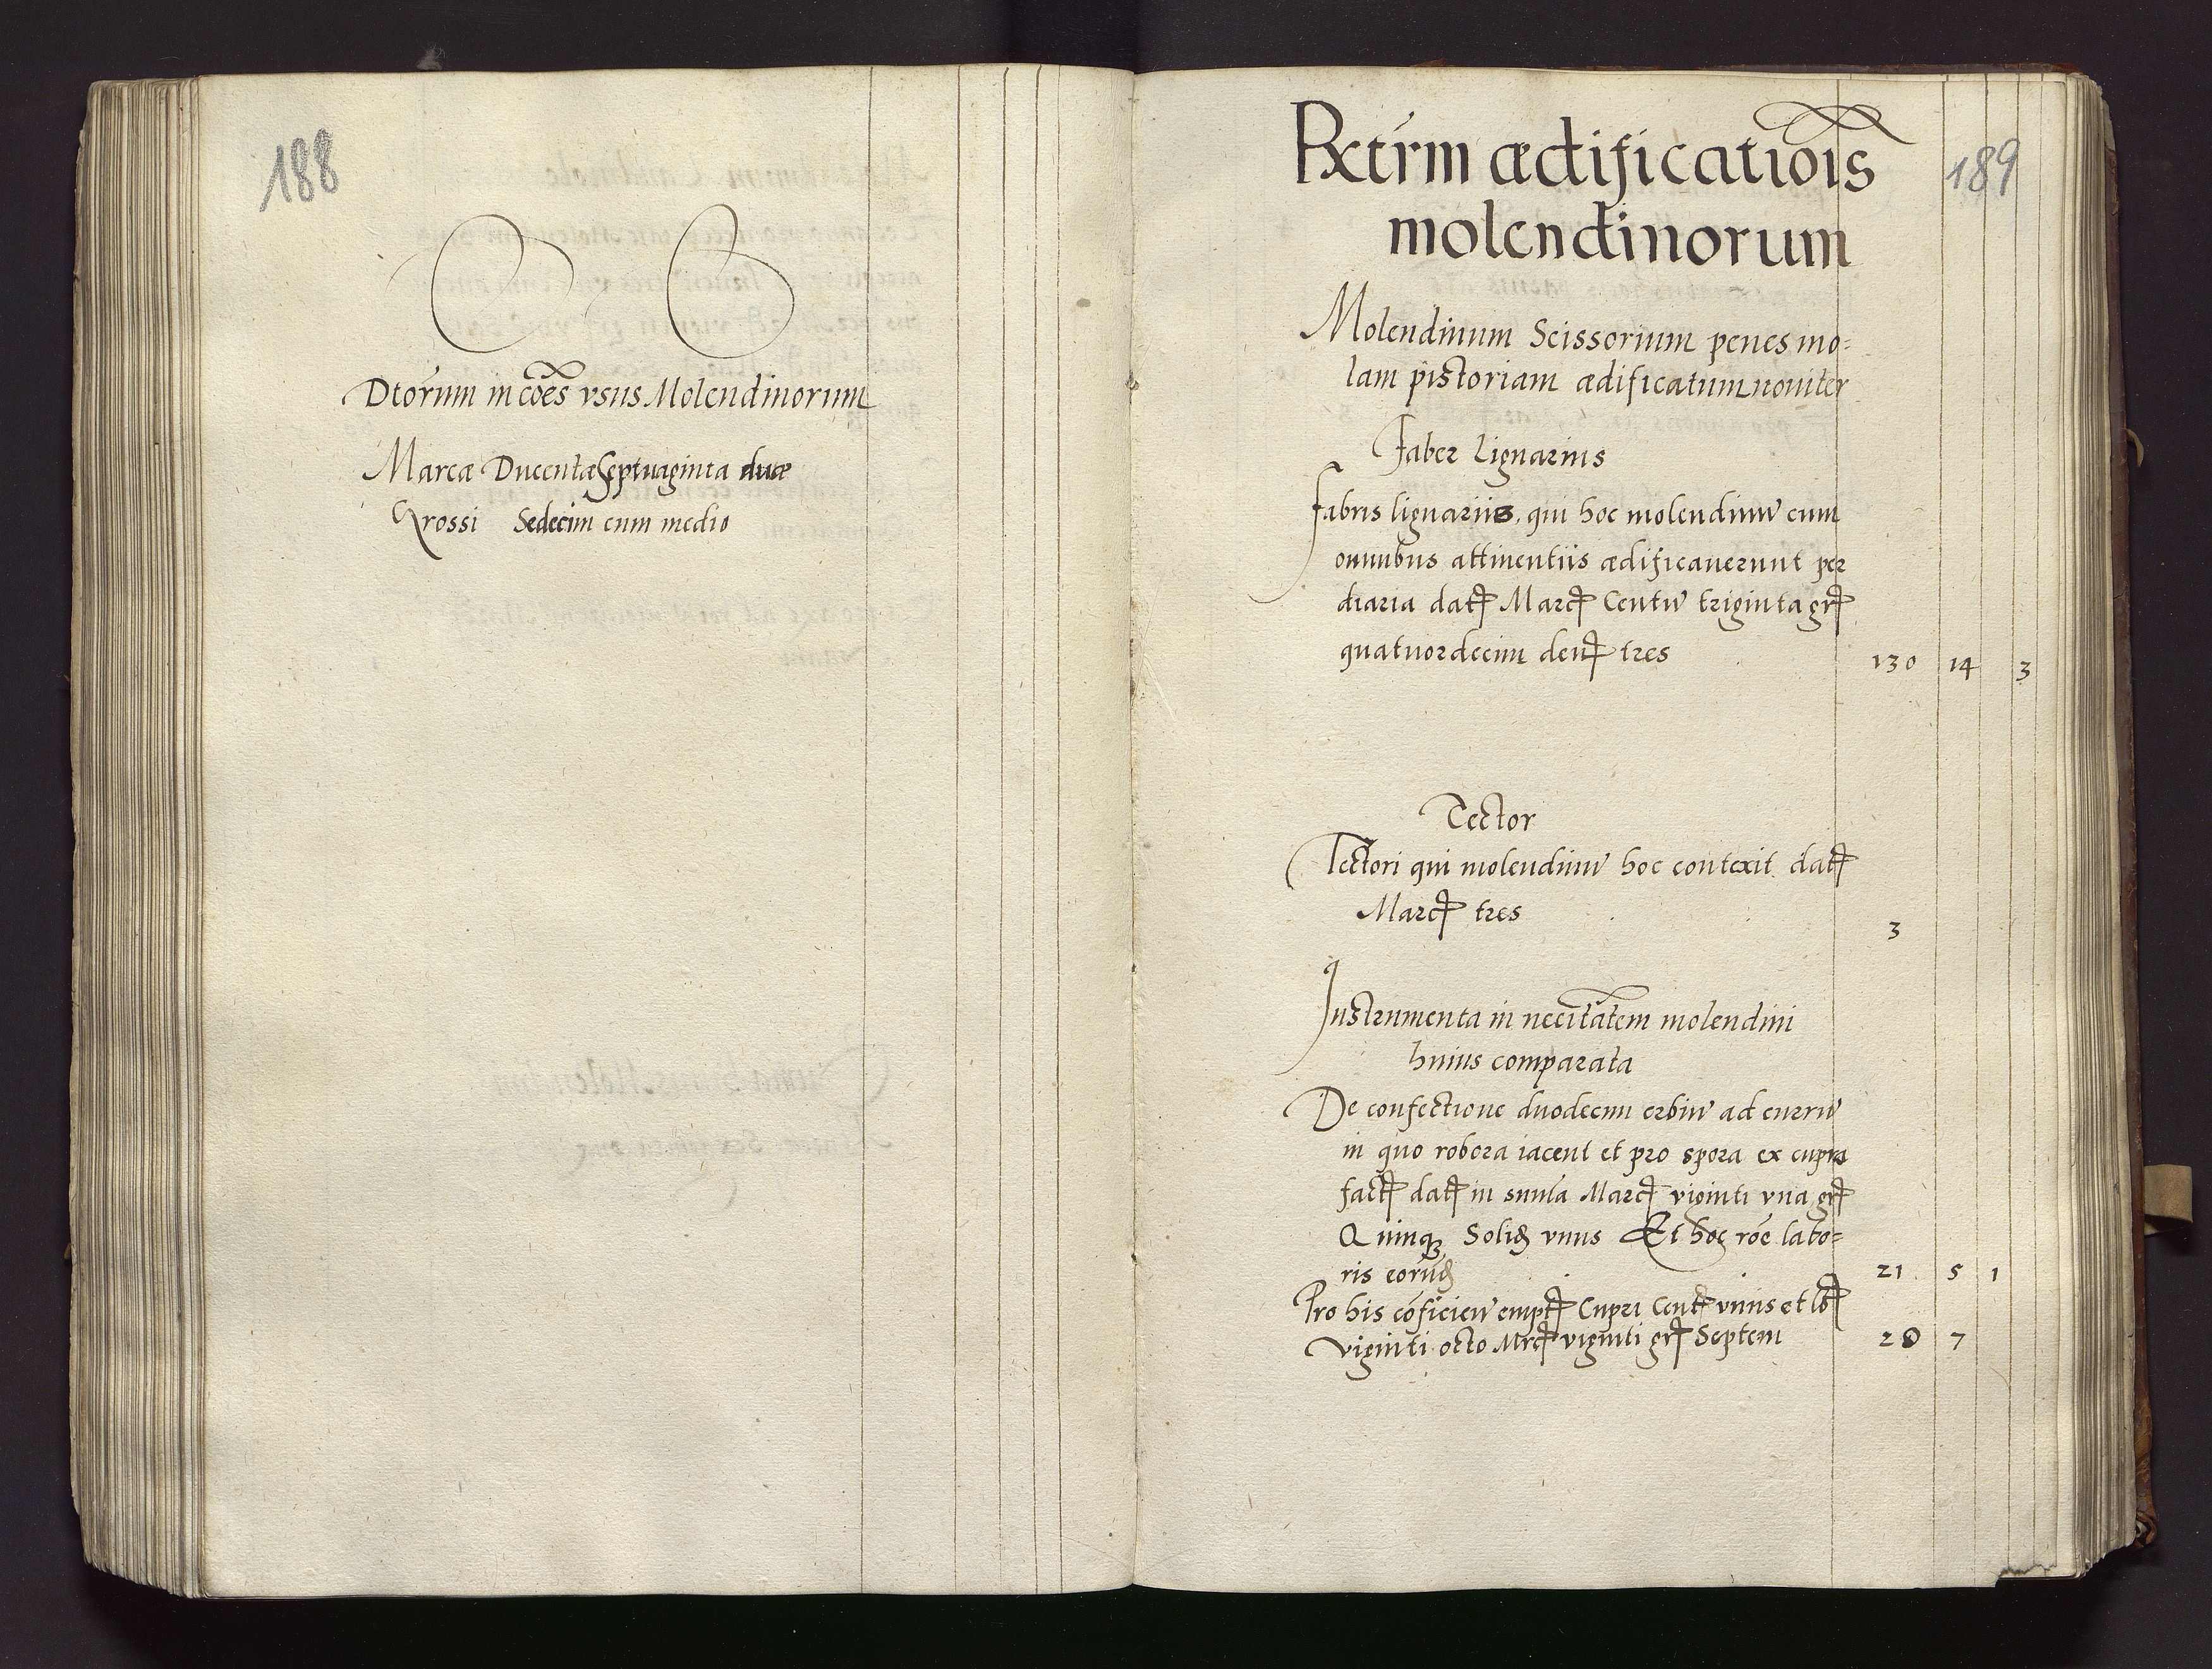 188
Dtorum in cões vsus Molendinorum
Marcæ Ducentæ Septuaginta duæ
Grossi Sedecim cum medio
189
Pxtrm ædificatiois
molendinorum
Molendinum Scissorium penes mo=
lam pistoriam ædificatum noviter
Faber Lignarius
Fabris lignariis, qui hoc molendinũ cum
omnibus attinentiis ædificauerunt per
diaria datꝭ Marcꝭ Centũ triginta grꝭ
quatuordecim denꝭ tres 130 14 3
Tector
Tectori qui molendinũ hoc contexit datꝭ
Marcꝭ tres 3
Instrumenta in necitatem molendini
huius comparata
De confectione duodecim orbiũ ad currũ
in quo robora iacent et pro spora ex cupro
factꝭ datꝭ in sum̃a Marcꝭ viginti vna grꝭ
Quinqꝫ Solid vnus Et hoc rõe labo=
ris eorũd 21 5 1
Pro his cõficien̄ emptꝭ Cupri Centꝭ vnius et lbꝭ
viginti octo Mrcꝭ viginti grꝭ Septem 20 7